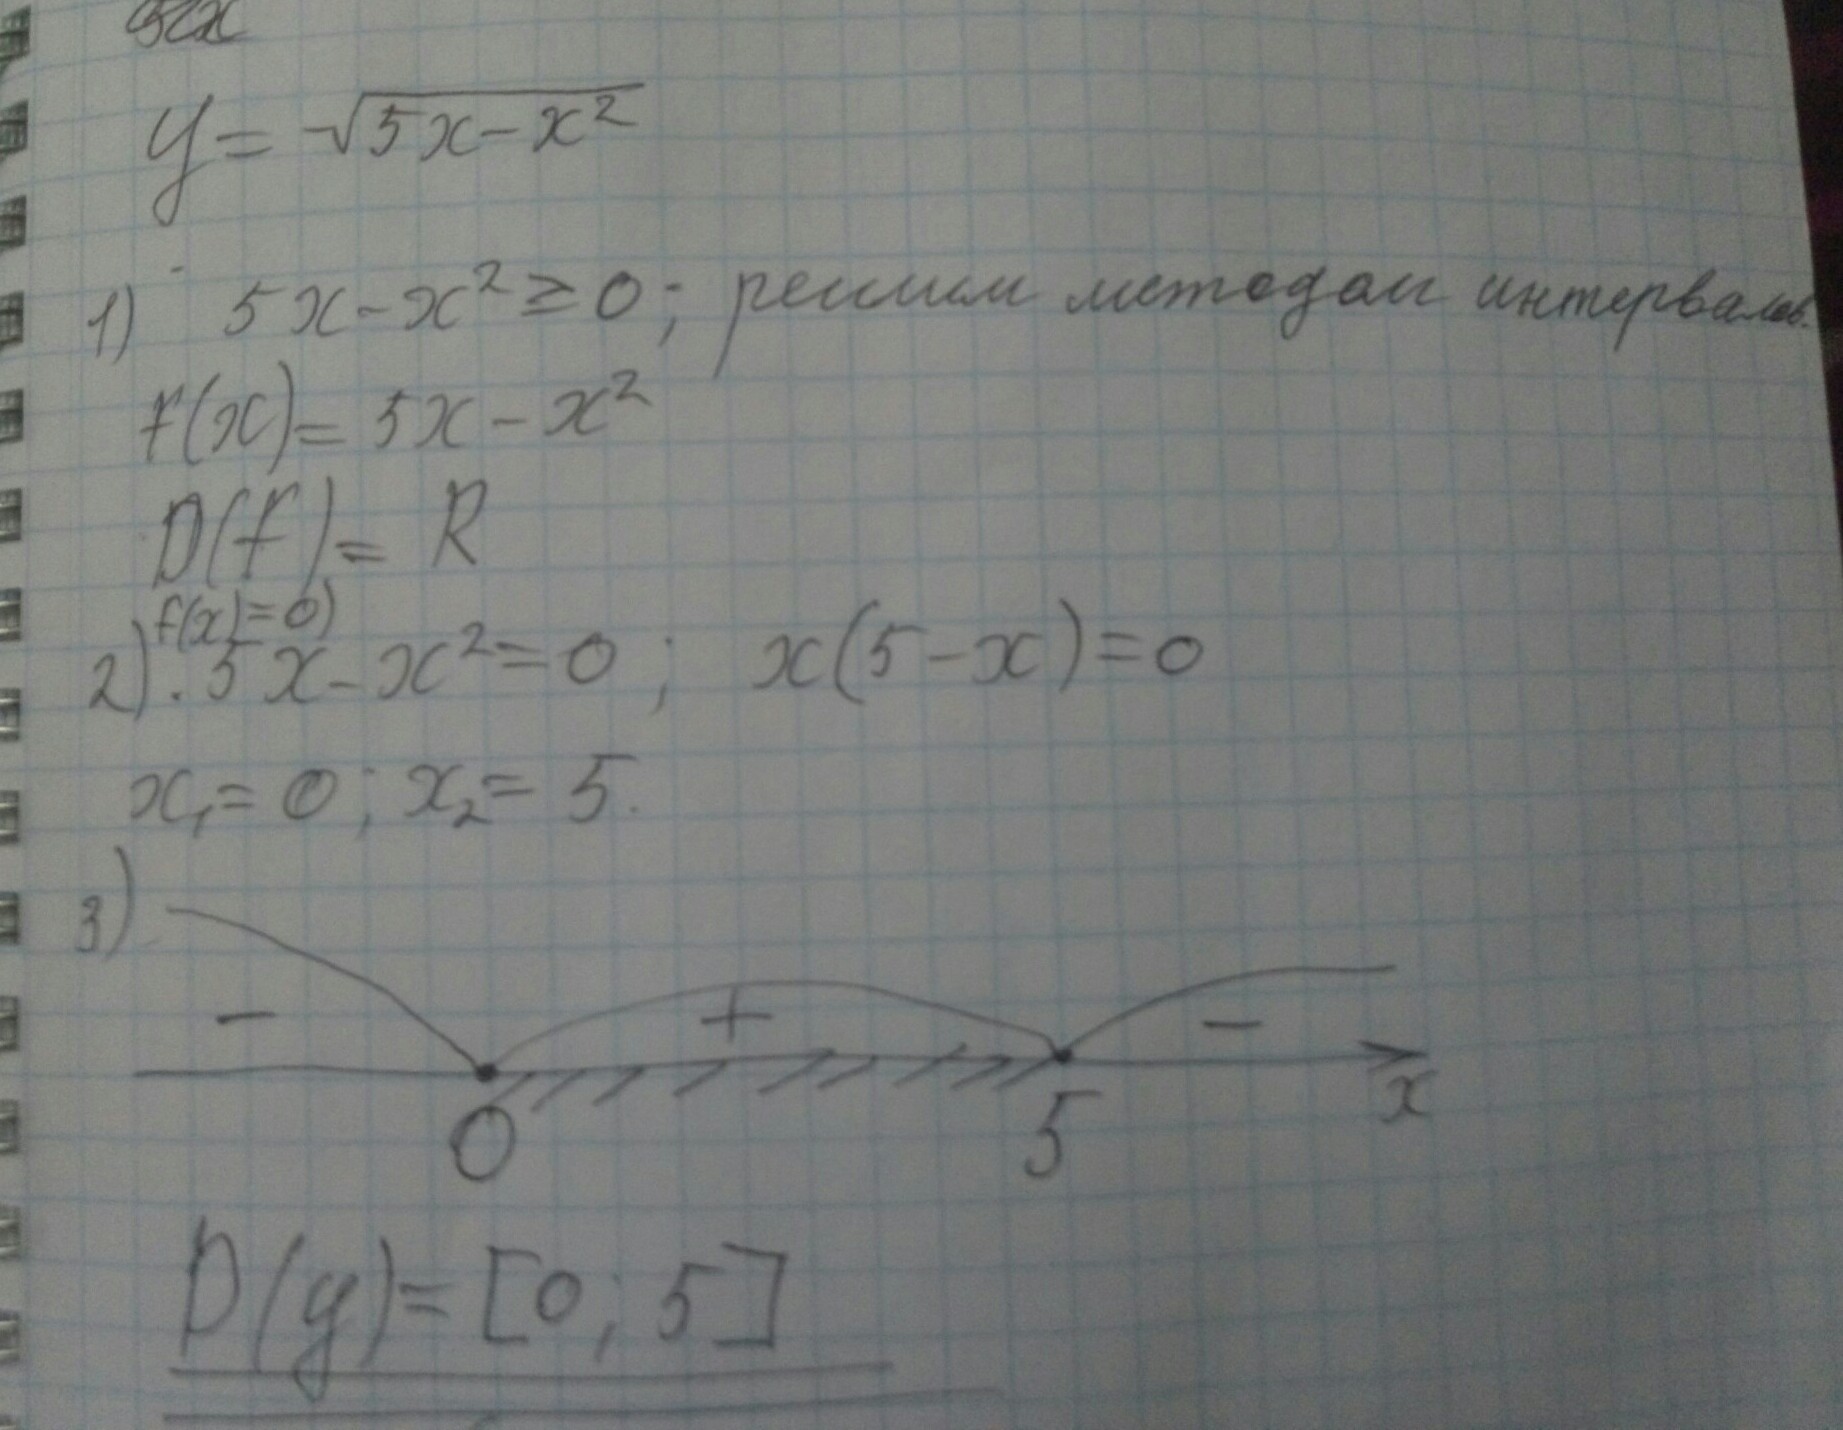 y = √5x - x²
1) 5x - x² ≥ 0; решим методом интервалов.
f(x) = 5x - x²
D(f) = R
f(x) = 0)
2). 5x - x² = 0; x(5 - x) = 0
x₁ = 0; x₂ = 5.
3)
- + -
0 5 x
D(y) = [0; 5]